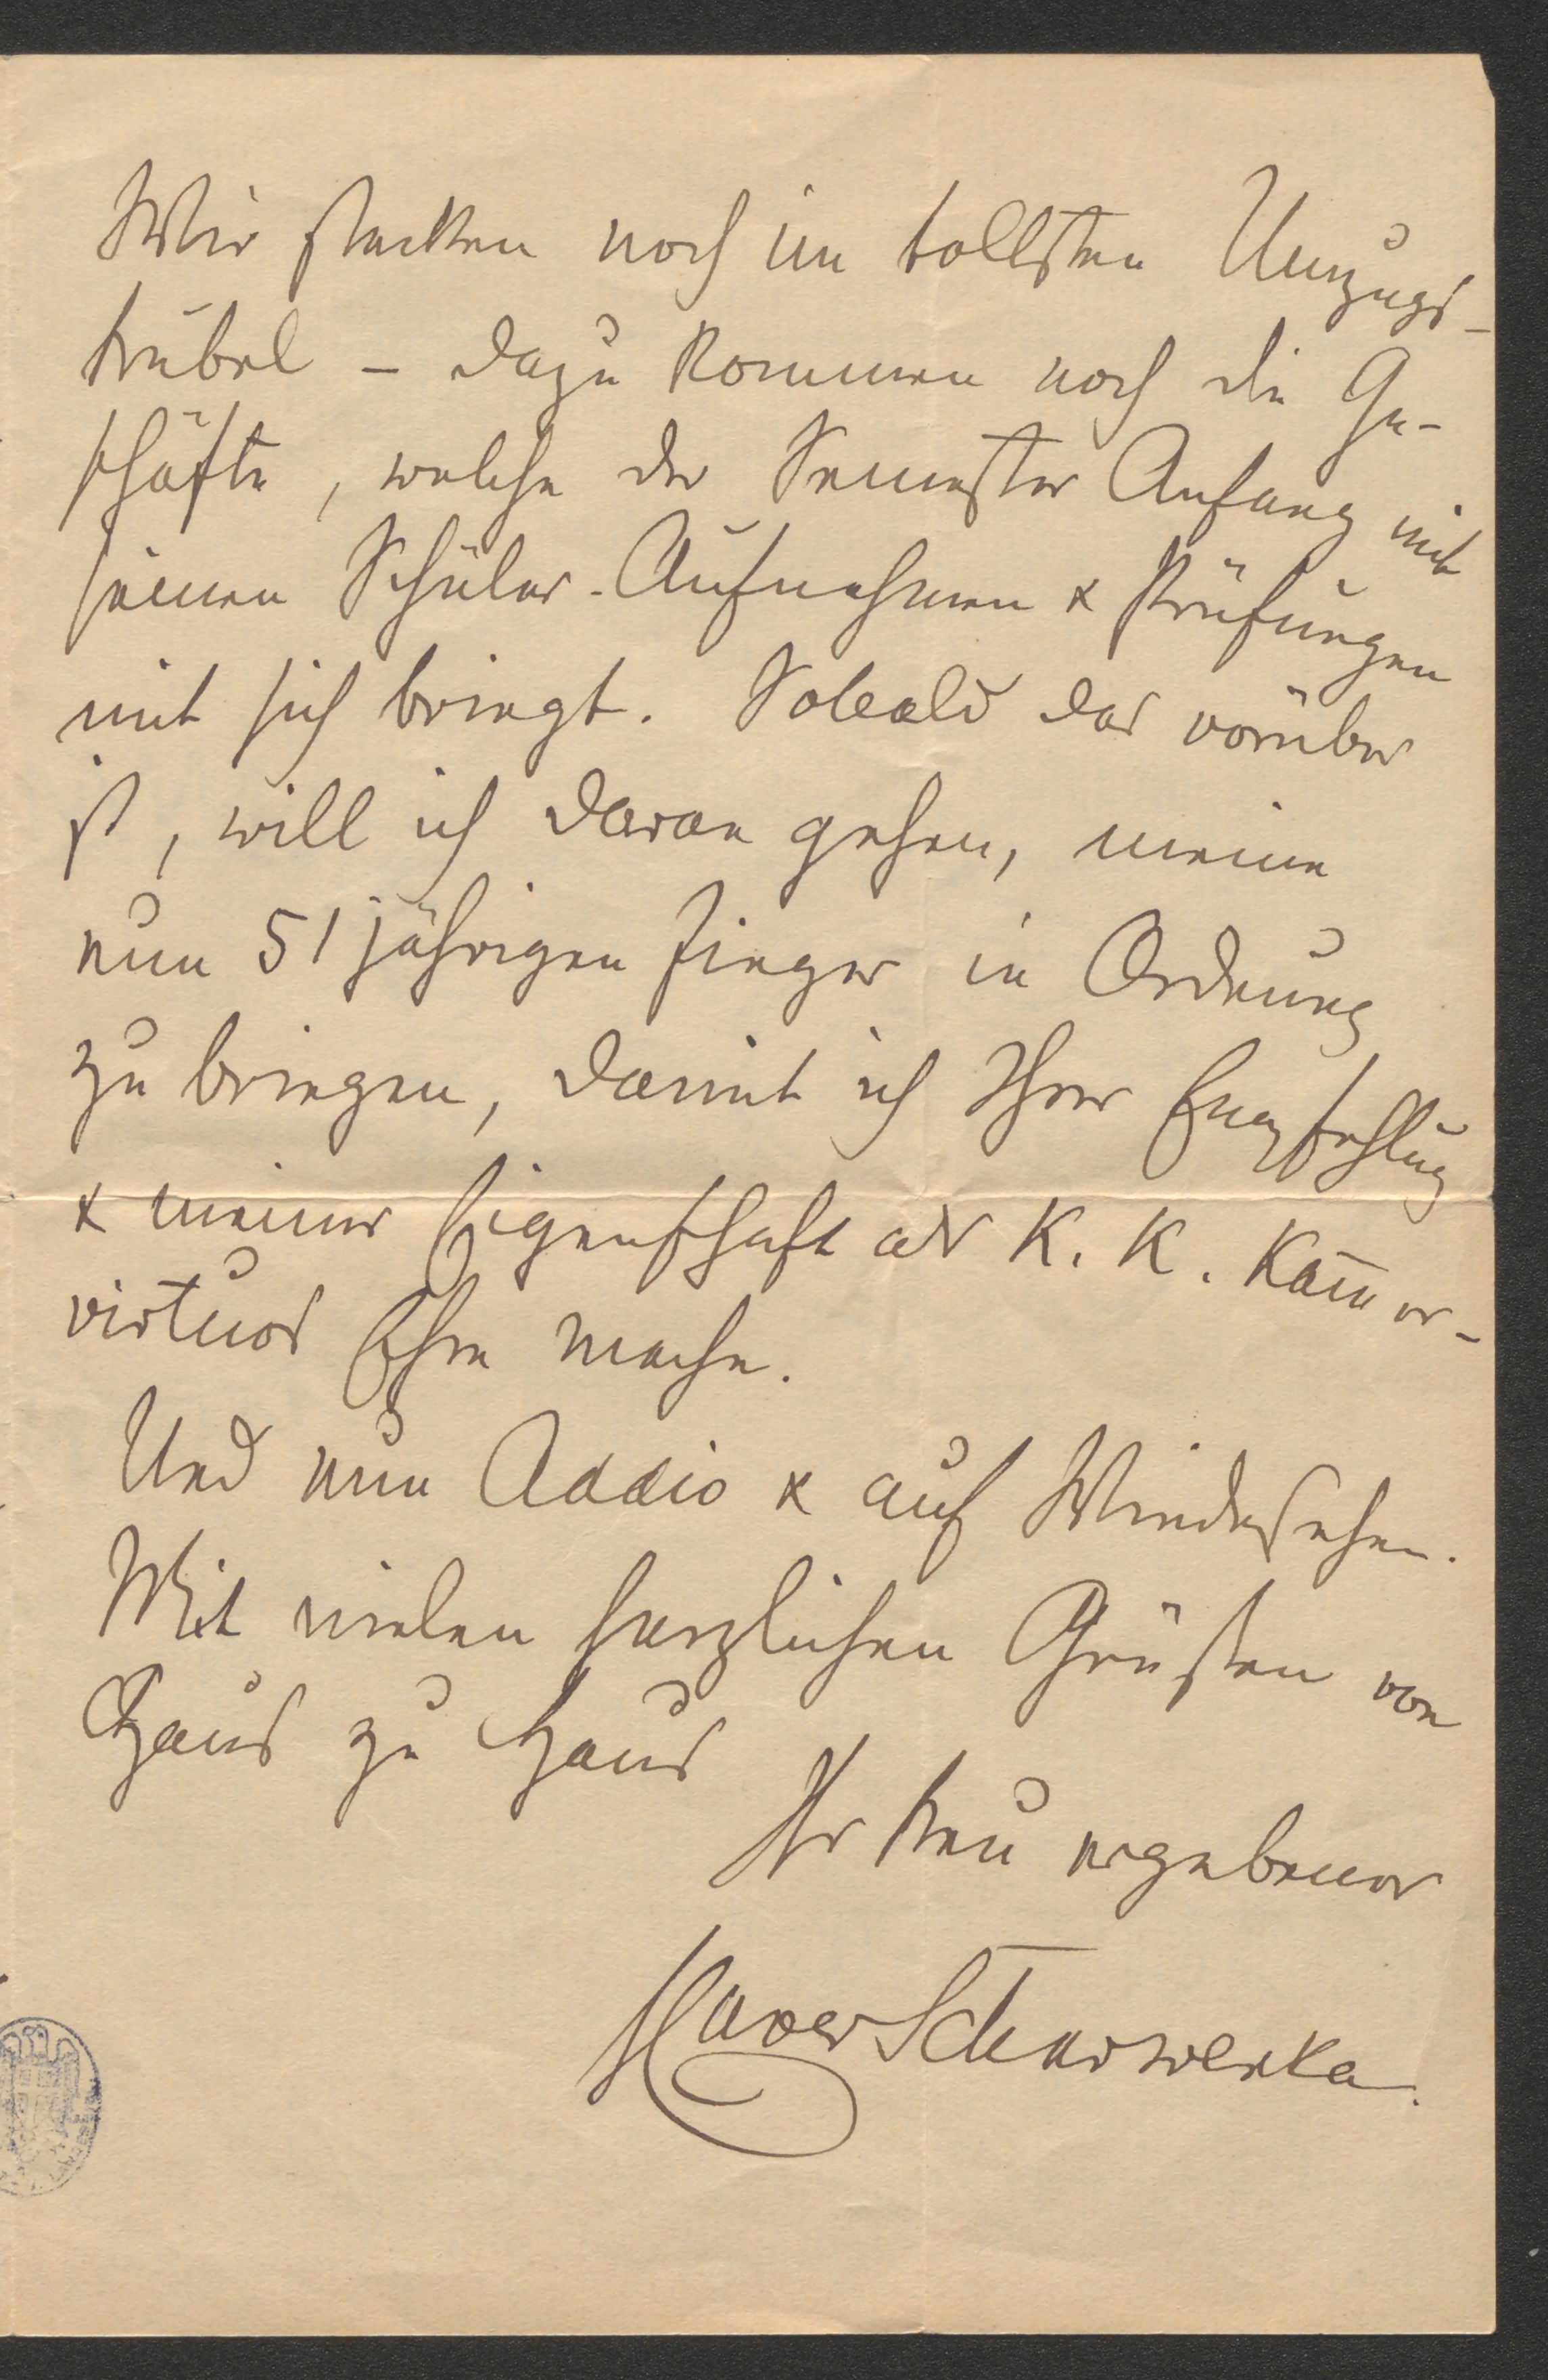 Wir stecken noch im tollsten Umzugs-
trubel – dazu kommen noch die Ge-
schäfte, welche der Semester Anfang mit
seinen Schüler-Aufnahmen & Prüfungen
mit sich bringt. Sobald das vorüber
ist, will ich daran gehen, meine
nun 51 jährigen Finger in Ordnung
zu bringen, damit ich Ihrer Empfehlung
& meiner Eigenschaft als K. K. Kam̅er-
virtuos Ehre mache.
Und nun Addio & auf Wiedersehen.
Mit vielen herzlichen Grüßen von
Haus zu Haus
Ihr treu ergebener
Xaver Scharwenka.